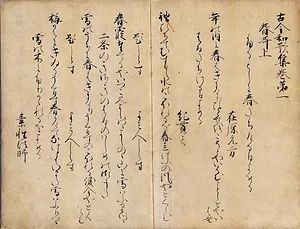 古今和歌集巻第一
春哥上
ふるとしに春たちける日よめる
在原元方
年の内に春はきにけりひとゝせをこそとやいはむ
ことしとやいはん
春たちける日よめる
紀貫之
袖ひちてむすひし水のこほれるを春立けふの風やとくらん
よみ人しらす
春霞たてるやいつこみよしのゝよしのゝ山に雪はふりつゝ
二条のきさきの春のはしめの御うた
雪の内に春はきにけりうくひすのこほれる涙今やとくらん
よみ人しらす
梅かえにきゐるうくひす春かけてなけともいまた雪はふりつゝ
雪の木にふりかゝれるをよめる
素性法師